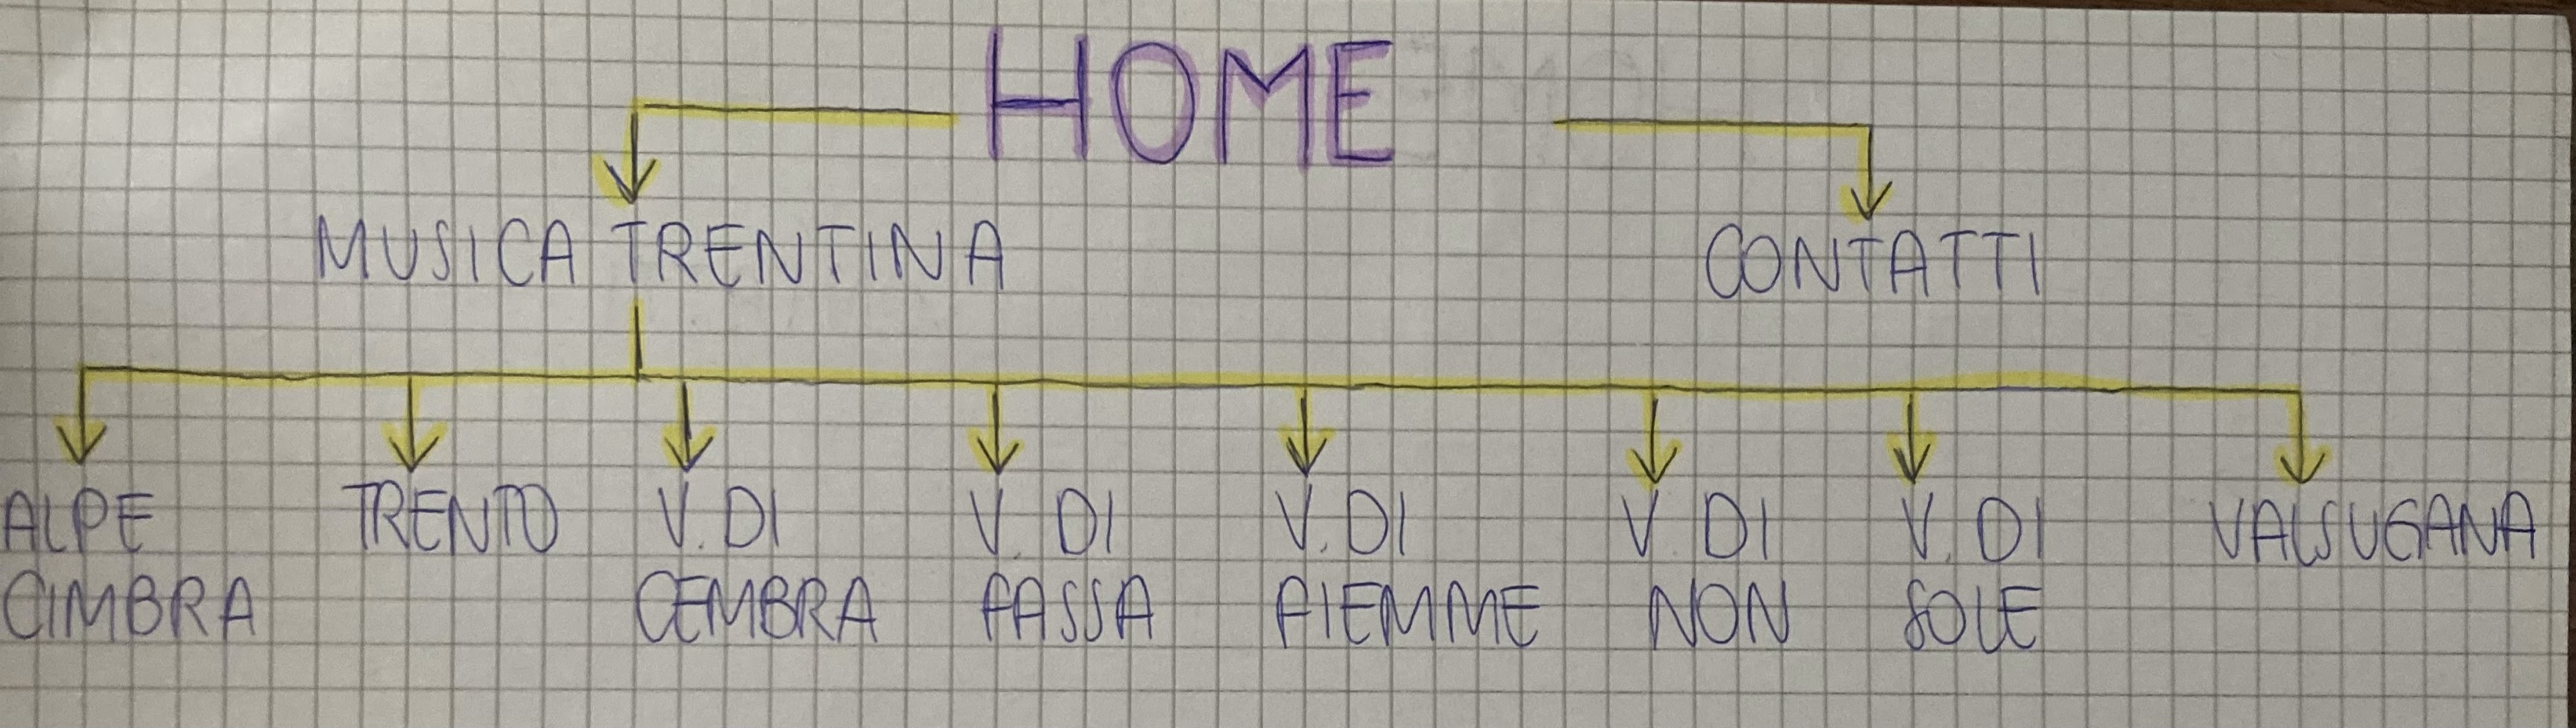 HOME
MUSICA TRENTINA
CONTATTI
ALPE
CIMBRA
TRENTO
V. DI
CEMBRA
V. DI
FASSA
V. DI
FIEMME
V. DI
NON
V. DI
SOLE
VALSUGANA